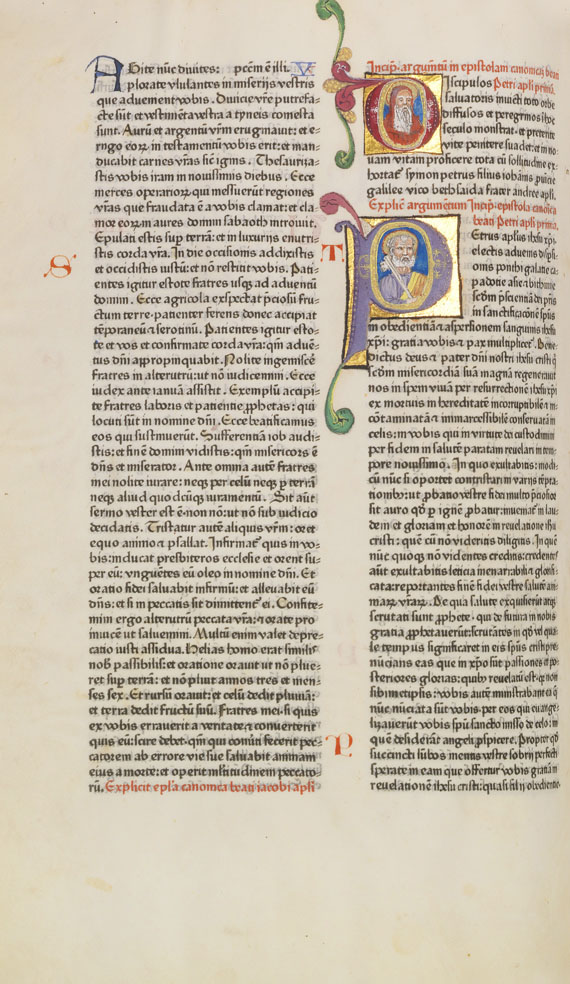 ADite nūc diuites: pccm̄ ē illi. V
plorate vlulantes in miserijs vestris
que aduenient vobis. Diuicie vr̄e putrefa⸗
cte sūt et vestimēta vestra a tyneis comesta
sunt. Aurū et argentū vr̄m eruginauit: et e⸗
rugo eoꝝ in testamentū vobis erit: et man⸗
ducabit carnes vr̄as sic ignis. Thesauriza⸗
stis vobis iram in nouissimis diebus. Ecce
merces operarioꝝ qui messuerūt regiones
vr̄as que fraudata ē a vobis clamat: et cla⸗
mor eoꝝ in aures domini sabaoth introiuit.
Epulati estis suꝑ terrā: et in luxurijs enutri⸗
stis corda vr̄a. In die occisionis addixistis
et occidistis iustū: et nō restitit vobis. Pati⸗
S
entes igitur estote fratres usqꝫ ad aduentū
domini. Ecce agricola exspectat p̄ciosū fru⸗
ctum terre: patienter ferens donec accipiat
tēporaneū ⁊ serotinū. Patientes igitur esto⸗
te et vos et confirmate corda vr̄a: qm̄ aduē⸗
tus dn̄i appropinquabit. Nolite ingemiscē
fratres in alterutrū: ut nō iudicemini. Ecce
iudex ante ianuā assistit. Exemplū accipi⸗
te fratres laboris et patientie, ꝓphetas: qui
locuti sūt in nomine dn̄i. Ecce beatificamus
eos qui sustinuerūt. Sufferentiā iob audi⸗
stis: et finē domini vidistis: qm̄ misericors ē
dn̄s et miserator. Ante omnia autē fratres
mei nolite iurare: neqꝫ per celū neqꝫ ꝑ terrā
neqꝫ aliud quodcūqꝫ iuramentū. Sit aūt
sermo vester est ē· non nō: ut nō sub iudicio
decidatis. Tristatur autē aliquis vr̄m: oret
equo animo ⁊ psallat. Infirmat̄ quis in vo⸗
bis: inducat presbiteros ecclesie et orent su⸗
per eū: vnguētes eū oleo in nomine dn̄i. Et
oratio fidei saluabit infirmū: et alleuabit eū
dn̄s: et si in peccatis sit dimittent̄ ei. Confite⸗
mini ergo alterutrū peccata vr̄a: ⁊ orate pro
inuicē ut saluemini. Multū enim valet depre⸗
catio iusti assidua. Helias homo erat similis
nob̄ passibilis: et oratione orauit ut nō plue⸗
ret suꝑ terrā: et nō pluit annos tres et men⸗
ses sex. Et rursū orauit: et celū dedit pluuiā:
et terra dedit fructū suū. Fratres mei· si quis
ex vobis errauerit a veritate ⁊ conuerterit
quis eū: scire debet· qm̄ qui conuerti fecerit pec⸗
catorem ab errore vie sue saluabit animam
eius a morte: et operit ml̄titudinem peccato⸗
rū. Explicit epl̄a canonica beati iacobi apl̄i
Incip̄. argumētū in epistolam canonicā beati
Petri apl̄i primā.
DIscipulos
saluatoris inuicti toto orbe
diffusos et peregrinos ī hoc
seculo monstrat· et preterite
vite penitere suadet: et in no⸗
uam vitam proficere tota cū sollicitudine ex⸗
hortat̄ symon petrus filius iohānis ꝓuīcie
galilee vico bethsaida frater andree apl̄i.
Explic̄ argumentum Incip̄· epistola canōica
beati Petri apl̄i prima.
T
PEtrus apl̄us ih̄u xp̄i·
electis aduenis disp̄si⸗
onis ponthi galatie ca⸗
padocie asie ⁊ bithinie
scd̄m p̄scientiā dei pr̄is
in sanctificatōnē spūs
in obedientiā ⁊ aspersionem sanguinis ih̄u
xp̄i: gratia vobis ⁊ pax multiplicet̄. Bene⸗
dictus deus ⁊ pater dn̄i nostri ih̄u cristi q̄
scd̄m misericordiā suā magnā regenerauit
nos in spem viuā per resurrectionē ih̄u xp̄i
ex mortuis in hereditatē incorruptibilē ⁊ in⸗
cōtaminatā ⁊ immarcessibilē conseruatā in
celis: in vobis qui in virtute dei custodimini
per fidem in salutē paratam reuelari in tem⸗
pore nouissimo. In quo exultabitis: modi⸗
cū nūc si oportet contristari in varijs tēpta⸗
tionibꝰ: ut ꝓbatio vestre fidei multo p̄ciosior
sit auro qd̄ ꝑ ignē ꝓbatur: inueniat̄ in lau⸗
dem et gloriam et honorē in reuelatione ih̄u
cristi: quē cū nō videritis diligitis. In quē
nūc quoqꝫ nō videntes creditis: credentes
aūt exultabitis leticia inenarrabili ⁊ glorifi⸗
cata: reportantes finē fidei vestre salutē ani⸗
maꝝ vr̄aꝝ. De qua salute exquisierūt atqꝫ
scrutati sunt ꝓphete· qui de futura in nobis
gratia ꝓphetauerūt: scrutātes in qd̄ vel qua⸗
le tempus significaret in eis spūs cristi p̄e⸗
nūcians eas que in xp̄o sūt passiones et po⸗
steriores glorias: quibꝰ reuelatū est· qꝛ non
sibimetipsis: vobis autē ministrabant ea q̄
nūc nūciata sūt vobis per eos qui euange⸗
lizauerūt vobis spū sancto misso de celo: in
P
quē desiderāt angeli ꝓspicere. Propter qd̄
succincti lumbos mentis vestre sobrij perfecte
sperate in eam que offertur vobis gratiam
reuelationē ih̄esu cristi: quasi filij obedientie